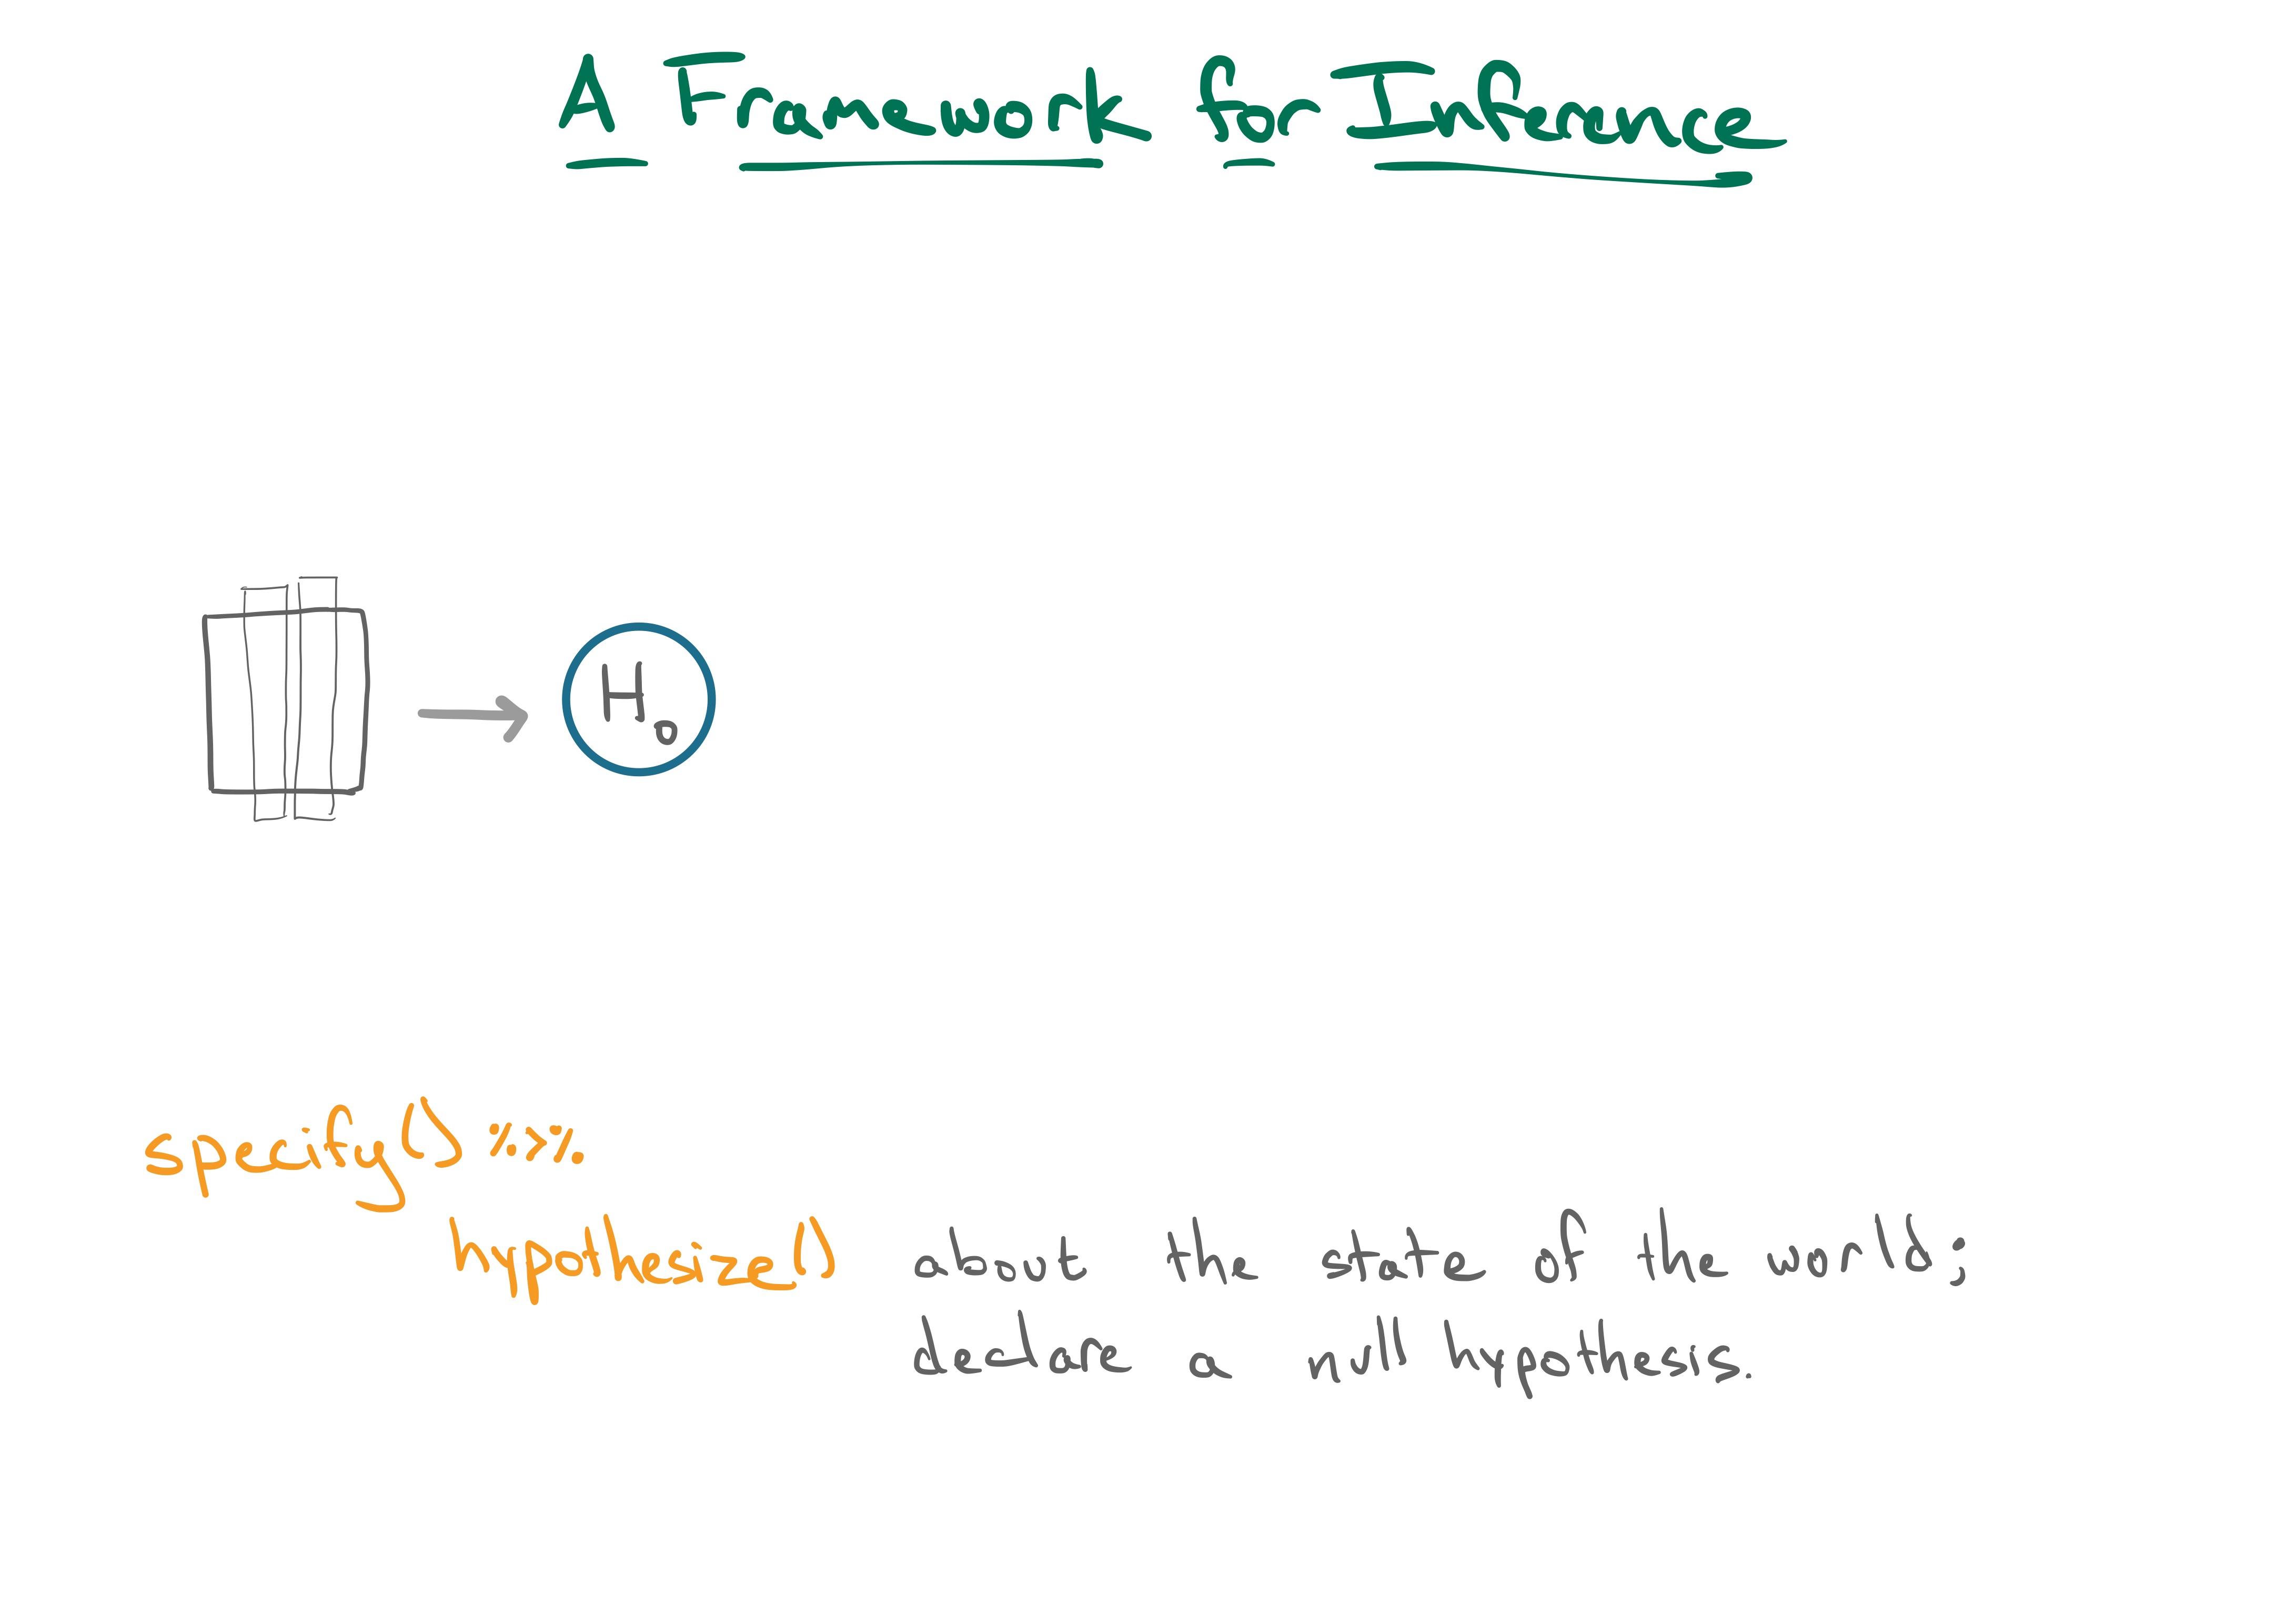 A Framework for Inference
H0
specify() %>%
hypothesize() about the state of the world;
declare a null hypothesis.